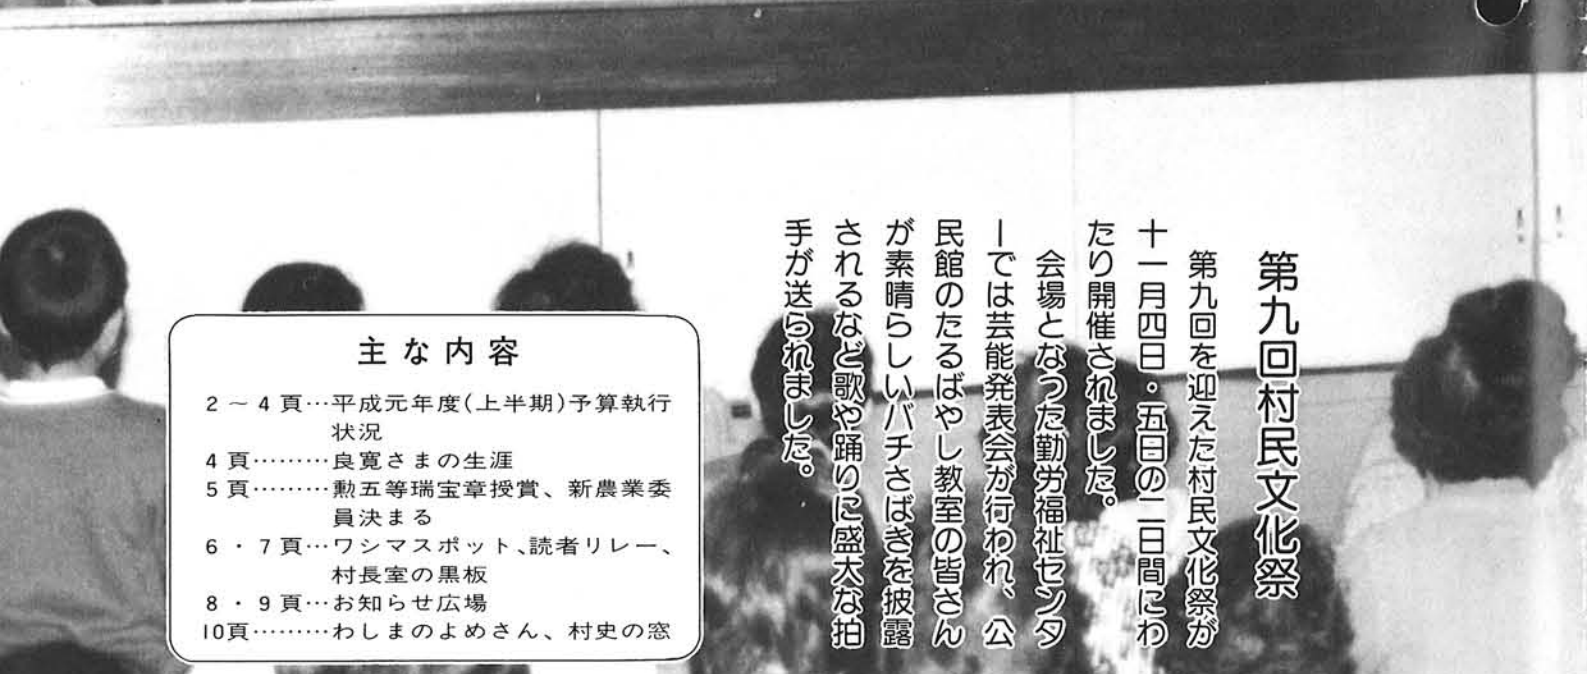 第九回村民文化祭
第九回を迎えた村民文化祭が
十一月四日・五日の二日間にわ
たり開催されました。
会場となった勤労福祉センタ
ーでは芸能発表会が行われ、公
民館のたるばやし教室の皆さん
が素晴らしいバチさばきを披露
されるなど歌や踊りに盛大な拍
手が送られました。
主な内容
2～4頁…平成元年度(上半期)予算執行
状況
4頁………良寛さまの生涯
5頁………勲五等瑞宝章授賞、新農業委
員決まる
6・7頁…ワシマスポット、読者リレー、
村長室の黒板
8・9頁…お知らせ広場
10頁………わしまのよめさん、村史の窓